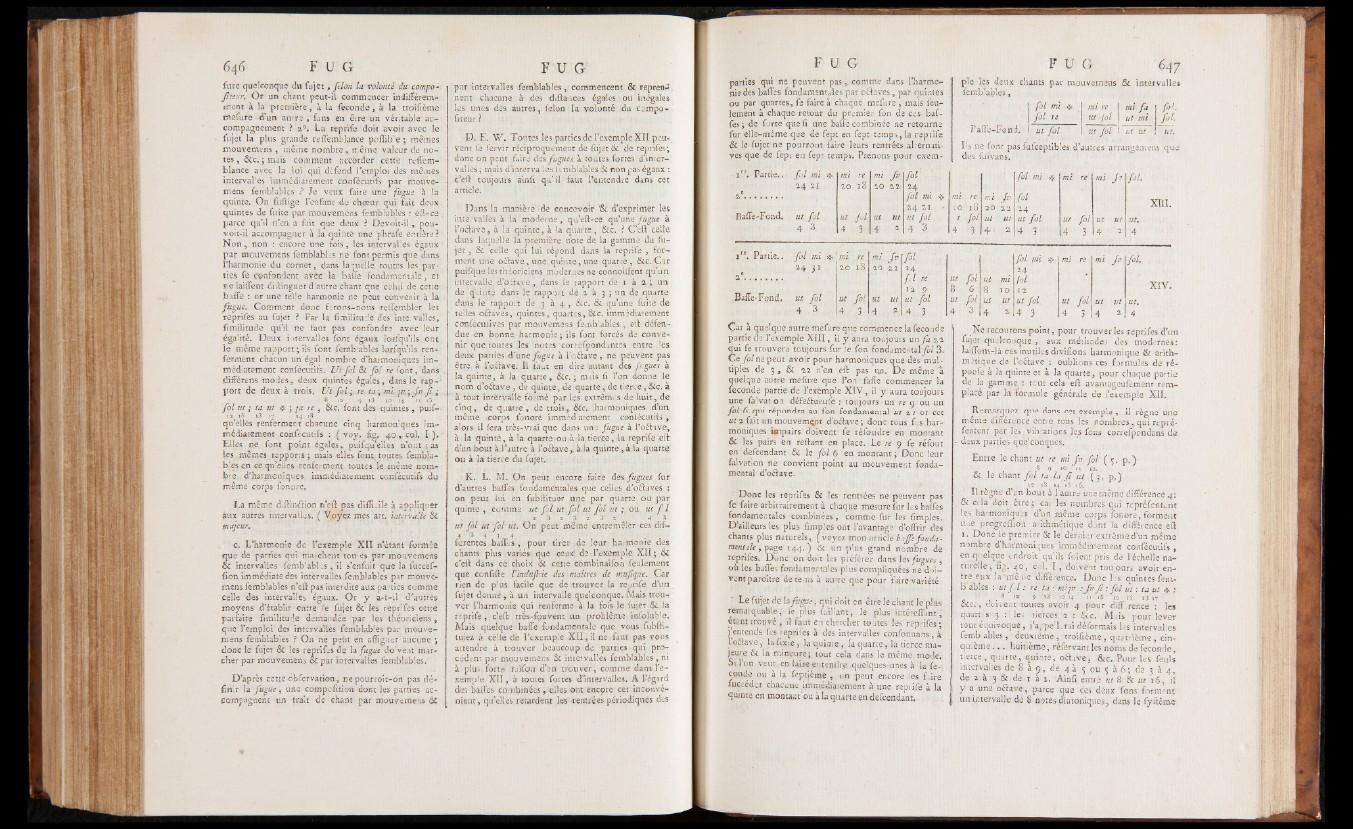 646 F U G
sure quelconque du sujet, selon la volonté du compo-
siteur. Or un chant peut-il commencer indifférem-
ment à la première, à la seconde, à la troisième
mesure d'un autre, sans en être un véritable ac-
compagnement ? 2°. La reprise doit avoir avec le
sujet la plus grande ressemblance possible ; mêmes
mouvemens, même nombre, même valeur de no-
tes, &c. ; mais comment accorder cette ressem-
blance avec la loi qui défend l'emploi des mêmes
intervalles immédiatement consécutifs par mouve-
mens semblables ? Je veux faire une fugue à la
quinte. On fustige l'enfant de chœur qui fait deux
quintes de suite par mouvemens semblables : est-ce
parce qu'il n'en a fait que deux ? Devoit-il, pou-
voit-il accompagner à la quinte une phrase entière ?
Non, non : encore une fois, les intervalles égaux
par mouvemens semblables ne sont permis que dans
l'harmonie du cornet, dans laquelle toutes les par-
ties se confondent avec la basse fondamentale, et
ne laissent distinguer d'autre chant que celui de cette
basse : or une telle harmonie ne peut convenir à la
fugue. Comment donc ferons-nous ressembler les
reprises au sujet ? Par la similitude des intervalles,
similitude qu'il ne faut pas confondre avec leur
égalité. Deux intervalles sont égaux lorsqu'ils ont
le même rapport ; ils sont semblables lorsqu'ils ren-
ferment chacun un égal nombre d'harmoniques im-
médiatement consécutifs. Ut sol & sol re sont, dans
différens modes, deux quintes égales, dans le rap-
port de deux à trois. Ut sol ; re ta ; mi
8 12 9 13 10 14 11 15
sol ut ; ta ut ; ta re, &c. sont des quintes, puis-
12 16 13 17 14 18
qu'elles renferment chacune cinq harmoniques im-
médiatement consécutifs : (voy. fig. 40, col. I).
Elles ne sont point égales, puisqu'elles n'ont pas
les mêmes rapports ; mais elles sont toutes sembla-
bles en ce qu'elles renferment toutes le même nom-
bre d'harmoniques immédiatement consécutifs du
même corps sonore.
La même distinction n'est pas difficile à appliquer
aux autres intervalles. (Voyez mes art. intervalle &
majeur.
c. L'harmonie de l'exemple XII n'étant formée
que de parties qui marchent toutes par mouvemens
& intervalles semblables, il s'ensuit que la succes-
sion immédiate des intervalles semblables par mouve-
mens semblables n'est pas interdite aux parties comme
celle des intervalles égaux. Or y a-t-il d'autres
moyens d'établir entre le sujet & les reprises cette
parfaite similitude demandée par les théoriciens,
que l'emploi des intervalles semblables par mouve-
mens semblables ? On ne peut en assigner aucune ;
donc le sujet & les reprises de la fugue doivent mar-
cher par mouvemens & par intervalles semblables.
D'après cette observation, ne pourroit-on pas dé-
finir la fugue, une composition dont les parties ac-
compagnent un trait de chant par mouvemens &
F U G
par intervalles semblables, commencent & repren-
nent chacune à des distances égales ou inégales
les unes des autres, selon la volonté du compo-
siteur ?
D. E. W. Toutes les parties de l'exemple XII peu-
vent se servir réciproquement de sujet & de reprises ;
donc on peut faire des fugues à toutes sortes d'inter-
valles ; mais d'intervalles semblables & non pas égaux :
c'est toujours ainsi qu'il faut l'entendre dans cet
article.
Dans la manière de concevoir & d'exprimer les
intervalles à la moderne, qu'est-ce qu'une fugue à
l'octave, à la quinte, à la quarte, &c. ? C'est celle
dans laquelle la première note de la gamme du su-
jet, & celle qui lui répond dans la reprise, for-
ment une octave, une quinte, une quarte, &c. Car
puisque les théoriciens modernes ne connoissent qu'un
intervalle d'octave, dans le rapport de 1 à 2 ; un
de quinte dans le rapport de 2 à 3 ; un de quarte
dans le rapport de 3 à 4, &c. & qu'une suite de
telles octaves, quintes, quartes, &c. immédiatement
consécutives par mouvemens semblables, est défen-
due en bonne harmonie ; ils sont forcés de conve-
nir que toutes les notes correspondantes entre les
deux parties d'une fugue à l'octave, ne peuvent pas
être à l'octave. Il faut en dire autant des fugues à
la quinte, à la quarte, &c. ; mais si l'on donne le
nom d'octave, de quinte, de quarte, de tierce, &c. à
à tout intervalle formé par les extrêmes de huit, de
cinq, de quatre, de trois, &c. harmoniques d'un
même corps sonore immédiatement consécutifs,
alors il sera très-vrai que dans une fugue à l'octave,
à la quinte, à la quarte ou à la tierce, la reprise est
d'un bout à l'autre à l'octave, à la quinte, à la quarte
ou à la tierce du sujet.
K. L. M. On peut encore faire des fugues sur
d'autres basses fondamentales que celles d'octaves :
on peut lui en substituer une par quarte ou par
quinte, comme ut sol ut sol ut sol ut ; ou ut sol
ut sol ut sol ut. On peut même entremêler ces dif-
férentes basses, pour tirer de leur harmonie des
chants plus variés que ceux de l'exemple XII ; &
c'est dans ce choix & cette combinaison seulement
que consiste l'industrie des maîtres de musique. Car
rien de plus facile que de trouver la reprise d'un
sujet donné, à un intervalle quelconque. Mais trou-
ver l'harmonie qui renferme à la fois le sujet & la
reprise, c'est très-souvent un problême insoluble.
Mais quelque basse fondamentale que vous substi-
tuiez à celle de l'exemple XII, il ne faut pas vous
attendre à trouver beaucoup de parties qui pro-
cèdent par mouvemens & intervalles semblables, ni
à plus forte raison d'en trouver, comme dans l'e-
xemple XII, à toutes sortes d'intervalles. A l'égard
des basses combinées, elles ont encore cet inconvé-
nient, qu'elles retardent les rentrées périodiques des
F U G
parties qui ne peuvent pas, comme dans l'harmo-
nie des basses fondamentales par octaves, par quintes
ou par quartes, se faire à chaque mesure, mais seu-
lement à chaque retour du premier son de ces bas-
ses ; de sorte que si une basse combinée ne retourne
sur elle-même que de sept en sept temps, la reprise
& le sujet ne pourront faire leurs rentrées alternati-
ves que de sept en sept temps. Prenons pour exem-
F U G 647
ple les deux chants par mouvemens & intervalles
semblables,
sol mi | mi re | mi fa | sol.
sol re | ut sol | ut mi | sol.
Basse-Fond. ut sol | ut sol | ut ut | ut.
Ils ne sont pas susceptibles d'autres arrangemens que
des suivans.
1re. Partie.. sol mi | mi re | mi fa | sol | sol mi | mi re | mi fa | sol.
24 21 20 18 20 22 24
2e........ sol mi | mi re | mi fa | sol
24 21 20 18 20 22 24
XIII.
Basse-Fond. ut sol | ut sol | ut ut | ut sol | ut sol | ut ut | ut sol | ut sol | ut ut | ut.
4 3 4 3 4 2 4 3 4 3 4 2 4 3 4 3 4 2 4
1re. Partie.. sol mi | mi re | mi fa | sol | sol mi | mi re | mi fa | sol.
24 31 20 18 20 22 24 24
2e........ sol re | ut sol | ut mi | sol
12 9 8 6 8 10 12
XIV.
Basse-Fond. ut sol | ut sol | ut ut | ut sol | ut sol | ut ut | ut sol | ut sol | ut ut | ut.
4 3 4 3 4 2 4 3 4 3 4 2 4 3 4 3 4 2 4
Car à quelque autre mesure que commence la seconde
partie de l'exemple XIII, il y aura toujours un fa 22
qui se trouvera toujours sur le son fondamental sol 3.
Ce sol ne peut avoir pour harmoniques que des mul-
tiples de 3, & 22 n'en est pas un. De même à
quelque autre mesure que l'on fasse commencer la
seconde partie de l'exemple XIV, il y aura toujours
une salvation défectueuse : toujours un re 9 ou un
sol 6 qui répondra au son fondamental ut 2 : or cet
ut 2 fait un mouvement d'octave ; donc tous ses har-
moniques impairs doivent se résoudre en montant
& les pairs en restant en place. Le re 9 se résout
en descendant & le sol 6 en montant ; Donc leur
salvation ne convient point au mouvement fonda-
mental d'octave.
Donc les reprises & les rentrées ne peuvent pas
se faire arbitrairement à chaque mesure sur les basses
fondamentales combinées, comme sur les simples.
D'ailleurs les plus simples ont l'avantage d'offrir des
chants plus naturels, (voyez mon article basse fonda-
mentale, page 144.) & un plus grand nombre de
reprises. Donc on doit les préférer dans les fugues,
où les basses fondamentales plus compliquées ne doi-
vent paroître de tems à autre que pour faire variété.
Le sujet de la fugue, qui doit en être le chant le plus
remarquable, le plus saillant, le plus intéressant,
étant trouvé, il faut en chercher toutes les reprises ;
j'entends ses reprises à des intervalles consonnans, à
l'octave, la sixte, la quinte, la quarte, la tierce ma-
jeure & la mineure ; tout cela dans le même mode.
Si l'on veut en faire entendre quelques-unes à la se-
conde ou à la septième, on peut encore les faire
succéder chacune immédiatement à une reprise à la
quinte en montant ou à la quarte en descendant.
Ne recourons point, pour trouver les reprises d'un
sujet quelconque, aux méthodes des modernes :
laissons-là ces inutiles divisions harmonique & arith-
métique de l'octave ; oublions ces formules de ré-
ponse à la quinte et à la quarte, pour chaque partie
de la gamme : tout cela est avantageusement rem-
placé par la formule générale de l'exemple XII.
Remarquez que dans cet exemple, il règne une
même différence entre tous les nombres, qui repré-
sentent par les vibrations les sons correspondans de
deux parties quelconques.
Entre le chant ut re mi fa sol (5. p.)
8 9 10 11 12.
& le chant sol ta la si ut (5. p.)
12 13 14 15 16.
Il règne d'un bout à l'autre une même différence 4 ;
& cela doit être ; car les nombres qui représentent
les harmoniques d'un même corps sonore, forment
une progression arithmétique dont la différence est
1. Donc le premier & le dernier extrême d'un même
nombre d'harmoniques immédiatement consécutifs,
en quelque endroit qu'ils soient pris de l'échelle na-
turelle, fig. 40, col. I, doivent toujours avoir en-
tre eux la même différence. Donc les quintes sem-
blables : ut sol : re ta : mi : fa si : sol ut : ta ut :
8 12 9 13 10 14 11 15 12 16 13 17
&c., doivent toutes avoir 4 pour différence : les
quartes 3 : les tierces 2 : &c. Mais pour lever
toute équivoque, j'appellerai désormais les intervalles
semblables, deuxième, troisième, quatrième, cin-
quième... huitième, réservant les noms de seconde,
tierce, quarte, quinte, octave, &c. Pour les seuls
intervalles de 8 à 9, de 4 à 5 ou 5 à 6 ; de 3 à 4,
de 2 à 3 & de 1 à 2. Ainsi entre ut 8 & ut 16, il
y a une octave, parce que ces deux sons forment
un intervalle de 8 notes diatoniques, dans le système